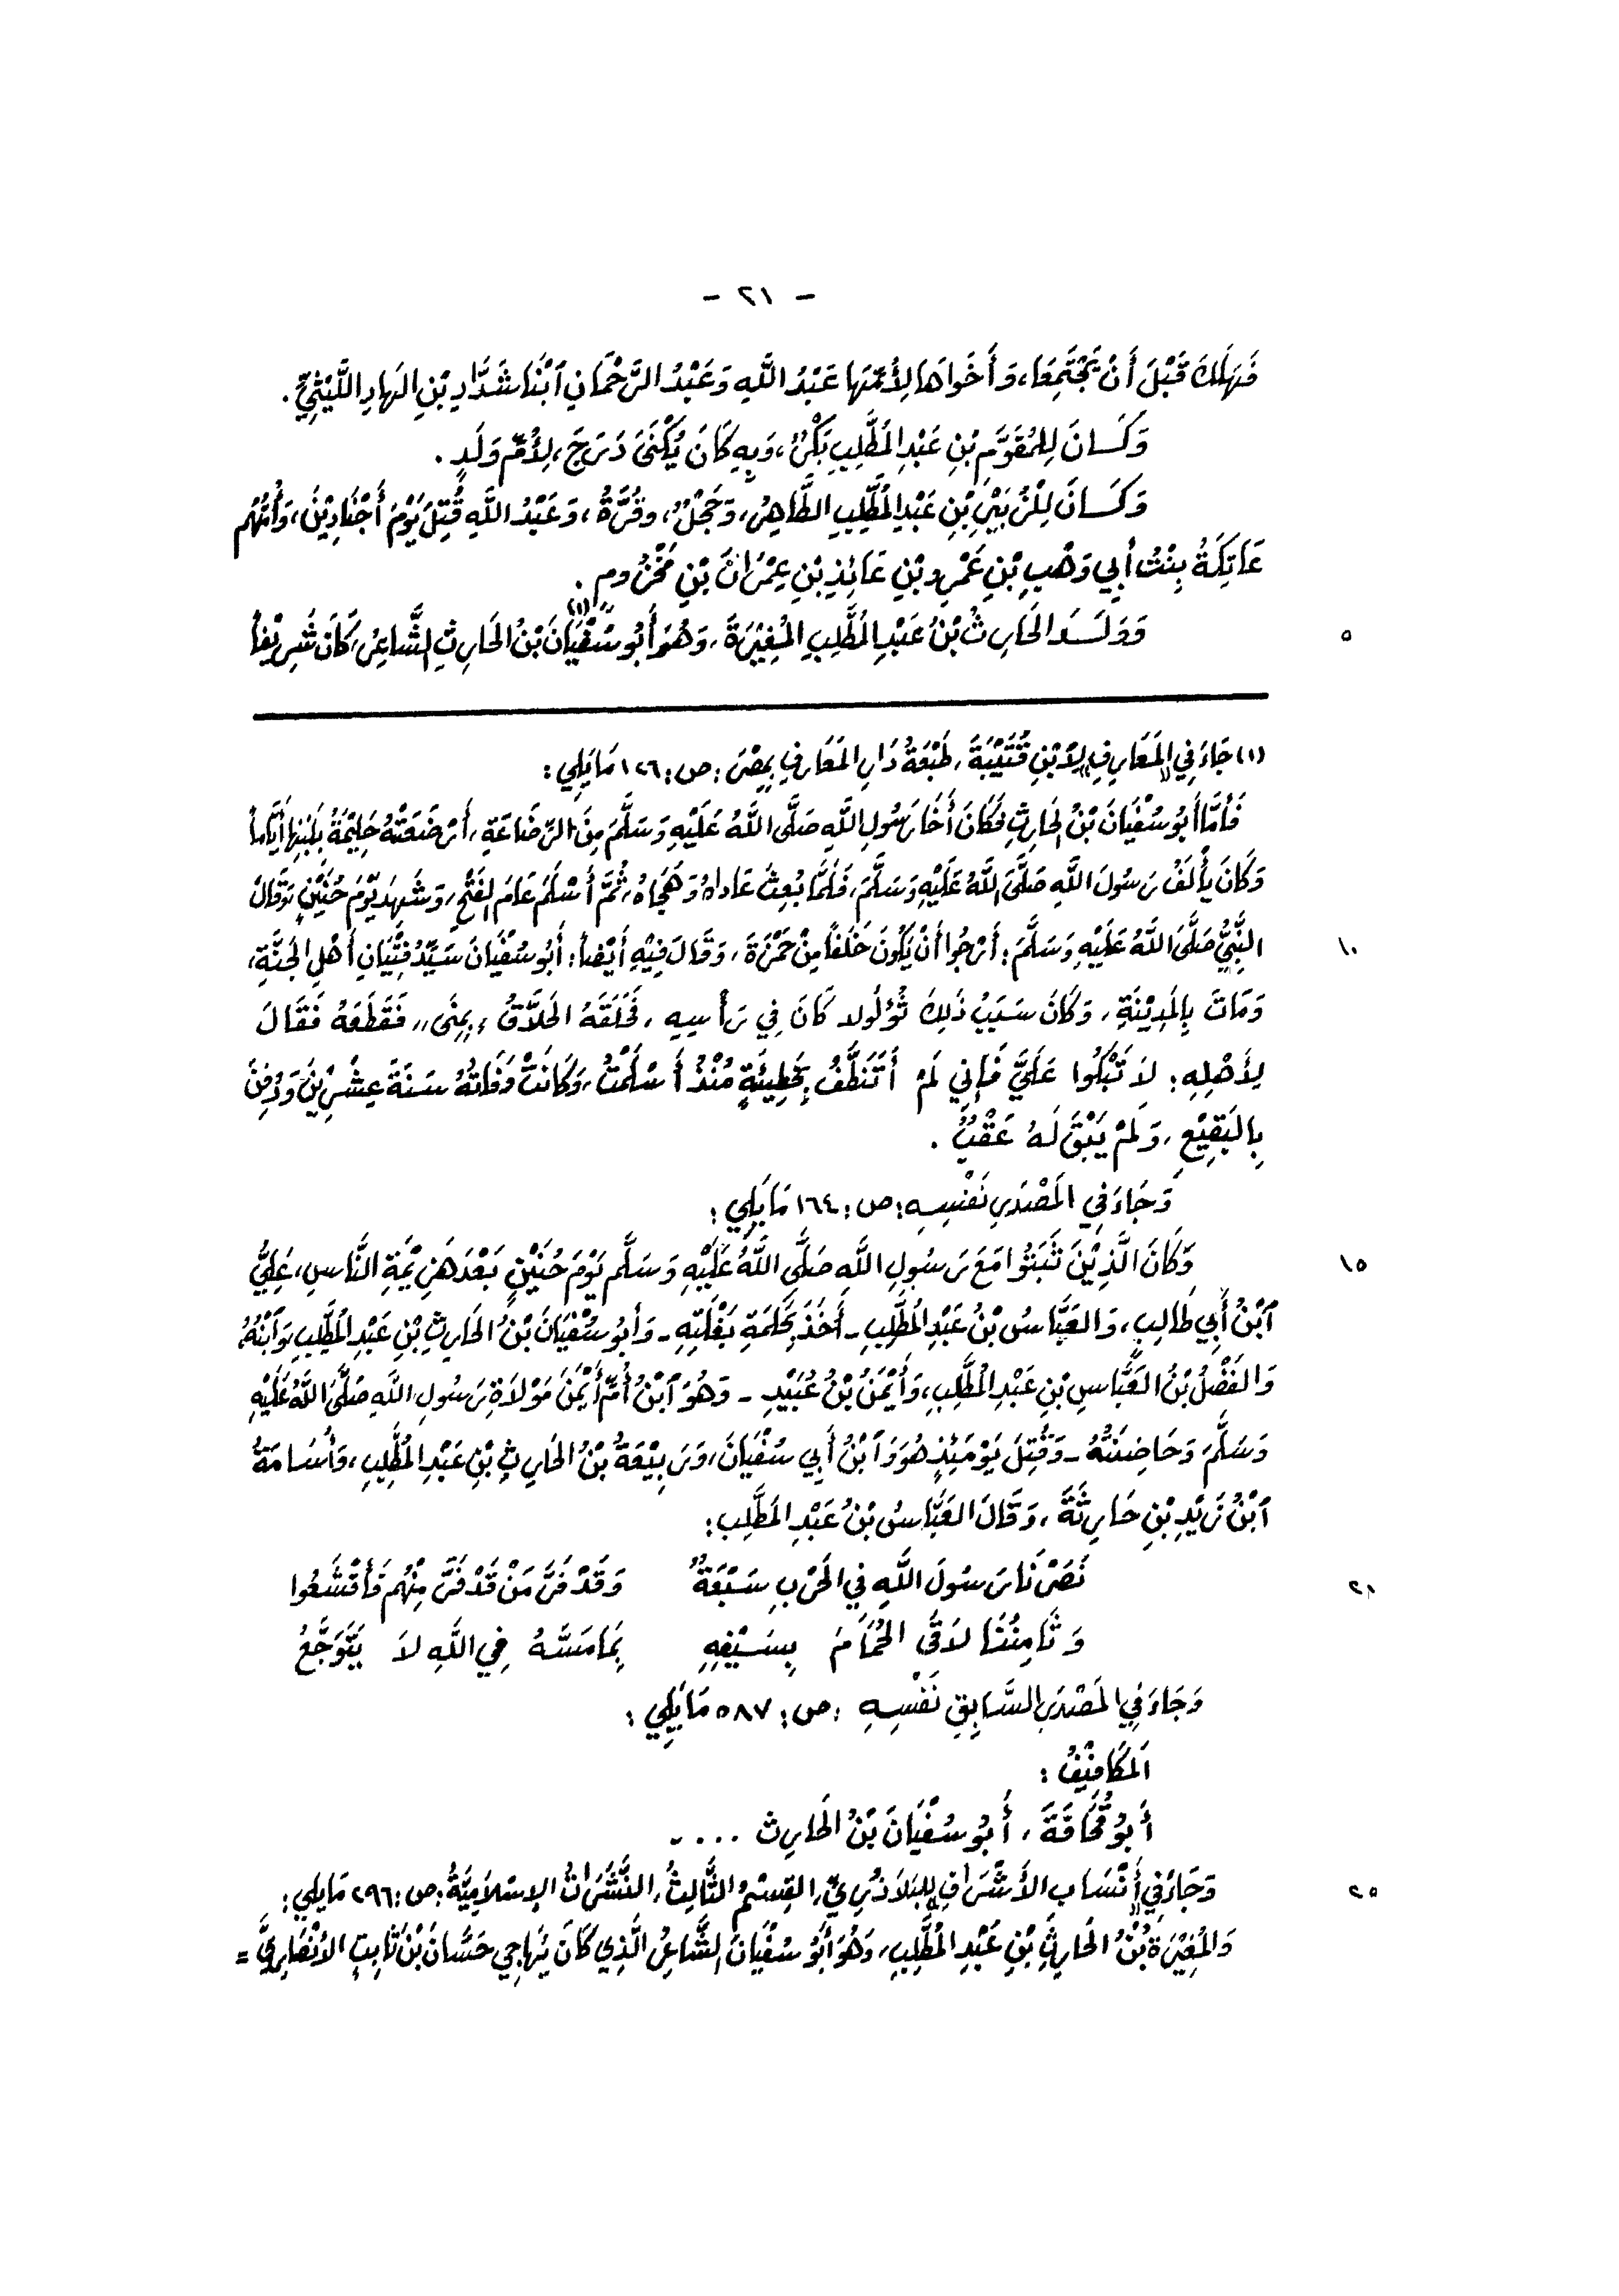 - ٢١ -
فَهَلَكَ قَبْلَ أَنْ يَجْتَمِعَا، وَأَخَواهَا لِأُمِّهَا عَبْدُ اللَّهِ وَعَبْدُ الرَّحْمَانِ ٱبْنَا شَدَّادِ بْنِ الهَادِ اللَّيْثِيِّ.
وَكَانَ لِلمُقَوَّمِ بْنِ عَبْدِ المُطَّلِبِ بَكْرٌ، وَبِهِ كَانَ يُكْنَى دَرَجَ، لِأُمِّ وَلَدٍ.
وَكَانَ لِلْزُّبَيْرِ بْنِ عَبْدِ المُطَّلِبِ الطَّاهِرُ، وَحَجْلٌ، وقُرَّةُ، وَعَبْدُ اللَّهِ قُتِلَ يَوْمَ أَجْنَادِيْنَ، وَأُمُّهُم
عَاتِكَةُ بِنْتُ أَبي وَهْبِ بْنِ عَمْرِو بْنِ عَائِذِ بْنِ عِمْرَانَ بْنِ مَخْزُومٍ.
٥ وَوَلَـدَ الحَارِثُ بْنُ عَبْدِ المُطَّلِبِ المُغِيْرَةَ، وَهُوَ أَبُو سُفْيَانَ (١) بْنُ الحَارِثِ الشَّاعِرُ، كَانَ شَرِيْفاً
(١) جَاءَ فِي «المَعَارِفِ» لِابْنِ قُتَيْبَةَ، طَبْعَةُ دَارِ المَعَارِفِ بِمِصْرَ: ص: ١٢٦ مَا يَلِي:
فَأَمَّا أَبُو سُفْيَانَ بْنُ الحَارِثِ فَكَانَ أَخَا رَسُولِ اللَّهِ صَلَّى اللَّهُ عَلَيْهِ وَسَلَّمَ مِنَ الرَّضَاعَةِ، أَرْضَعَتْهُ حَلِيْمَةُ بِلَبَنِهَا أَيَّاماً
وَكَانَ يأْلَفُ رَسُولَ اللَّهِ صَلَّى اللَّهُ عَلَيْهِ وَسَلَّمَ، فَلَمَّا بُعِثَ عَادَاهُ وَهَجَاهُ، ثُمَّ أَسْلَمَ عَامَ الفَتْحِ، وَشَهِدَ يَوْمَ حُنَيْنٍ، وَقَالَ
١٠ النَّبِيُّ صَلَّى اللَّهُ عَلَيْهِ وَسَلَّمَ: أَرْجُوا أَنْ يَكُونَ خَلَفاً مِنْ حَمْزَةَ، وَقَالَ فِيْهِ أَيْضاً: أَبُو سُفْيَانَ سَيِّدُ فِتْيَانِ أَهْلِ الجَنَّةِ،
وَمَاتَ بِالمَدِيْنَةِ، وَكَانَ سَبَبُ ذَلِكَ ثُؤْلُولد كَانَ فِي رَأْسِهِ، فَحَلَقَهُ الحَلَّاقُ «بِمِنَى» فَقَطَعَهُ فَقَالَ
لِأَهْلِهِ: لاَ تَبْكُوا عَلَيَّ فَإِنِّي لَمْ أَتَنَطَّفْ بِخَطِيئَةٍ مُنْذُ أَسْلَمْتُ، وَكَانَتْ وَفَاتُهُ سَنَةَ عِشْرِيْنَ وَدُفِنَ
بِالبَقِيْعِ، وَلَمْ يَبْقَ لَهُ عَقْبٌ.
وَجَاءَ فِي المَصْدَرِ نَفْسِهِ: ص: ١٦٤ مَا يَلِي:
١٥ وَكَانَ الَّذِيْنَ ثَبَتُوا مَعَ رَسُولِ اللَّهِ صَلَّى اللَّهُ عَلَيْهِ وَسَلَّم يَوْمَ حُنَيْنٍ بَعْدَ هَزِيْمَةِ النَّاسِ، عَلِيُّ
ٱبْنُ أَبي طَالِبٍ، وَالعَبَّاسُ بْنُ عَبْدِ المُطَّلِبِ ـ أَخَذَ بِحَكَمَةِ بَغْلَتِهِ ـ وَأَبُو سُفْيَانَ بْنُ الحَارِثِ بْنِ عَبْدِ المُطَّلِبِ وَٱبْنُهُ،
وَالفَضْلُ بْنُ العَبَّاسِ بْنِ عَبْدِ المُطَّلِبِ، وَأَيْمَنُ بْنُ عُبَيْدٍ ـ وَهُوَ ٱبْنُ أُمِّ أَيْمَنَ مَوْلَاةِ رَسُولِ اللَّهِ صَلَّى اللَّهُ عَلَيْهِ
وَسَلَّمَ وَحَاضِنَتُهُ ـ وَقُتِلَ يَوْمَئِذٍ هُوَ وَٱبْنُ أَبِي سُفْيَانَ، وَرَبِيْعَةُ بْنُ الحَارِثِ بْنِ عَبْدِ المُطَّلِبِ، وَأُسَامَةُ
ٱبْنُ زَيْدِ بْنِ حَارِثَةَ، وَقَالَ العَبَّاسُ بْنُ عَبْدِ المُطَّلِب:
٢٠ نَصَرْنَا رَسُولَ اللَّهِ فِي الحَرْبِ سَبْعَةٌ وَقَدْ فَرَّ مَنْ قَدْ فَرَّ مِنْهُم فَأَقْشَعُوا
وَثَامِنُنَا لاَقَى الحُمَامَ بِسَيْفِهِ بِمَا مَسَّهُ فِي اللَّهِ لاَ يَتَوَجَّعُ
وَجَاءَ فِي المَصْدَرِ السَّابِقِ نَفْسِهِ: ص: ٥٨٧ مَا يَلِي:
المَكَافِيْفُ:
أَبُو قُحَافَةَ، أَبُو سُفْيَانَ بْنُ الحَارِث ....
٢٥ وَجَاءَ فِي «أَنْسَابِ الأَشْرَافِ» لِلبَلَاذُرِيِّ، القِسْمُ الثَّالِثُ، النَّشَرَاتُ الإِسْلاَمِيَّةُ: ص: ٢٩٦ مَا يلي:
وَالمُغِيْرَةُ بْنُ الحَارِثِ بْنِ عَبْدِ المُطَّلِبِ، وَهُوَ أَبُو سُفْيَانَ الشَّاعِرُ الَّذِي كَانَ يُهَاجِي حَسَّانَ بْنَ ثَابِتٍ الأَنْصَارِيَّ =